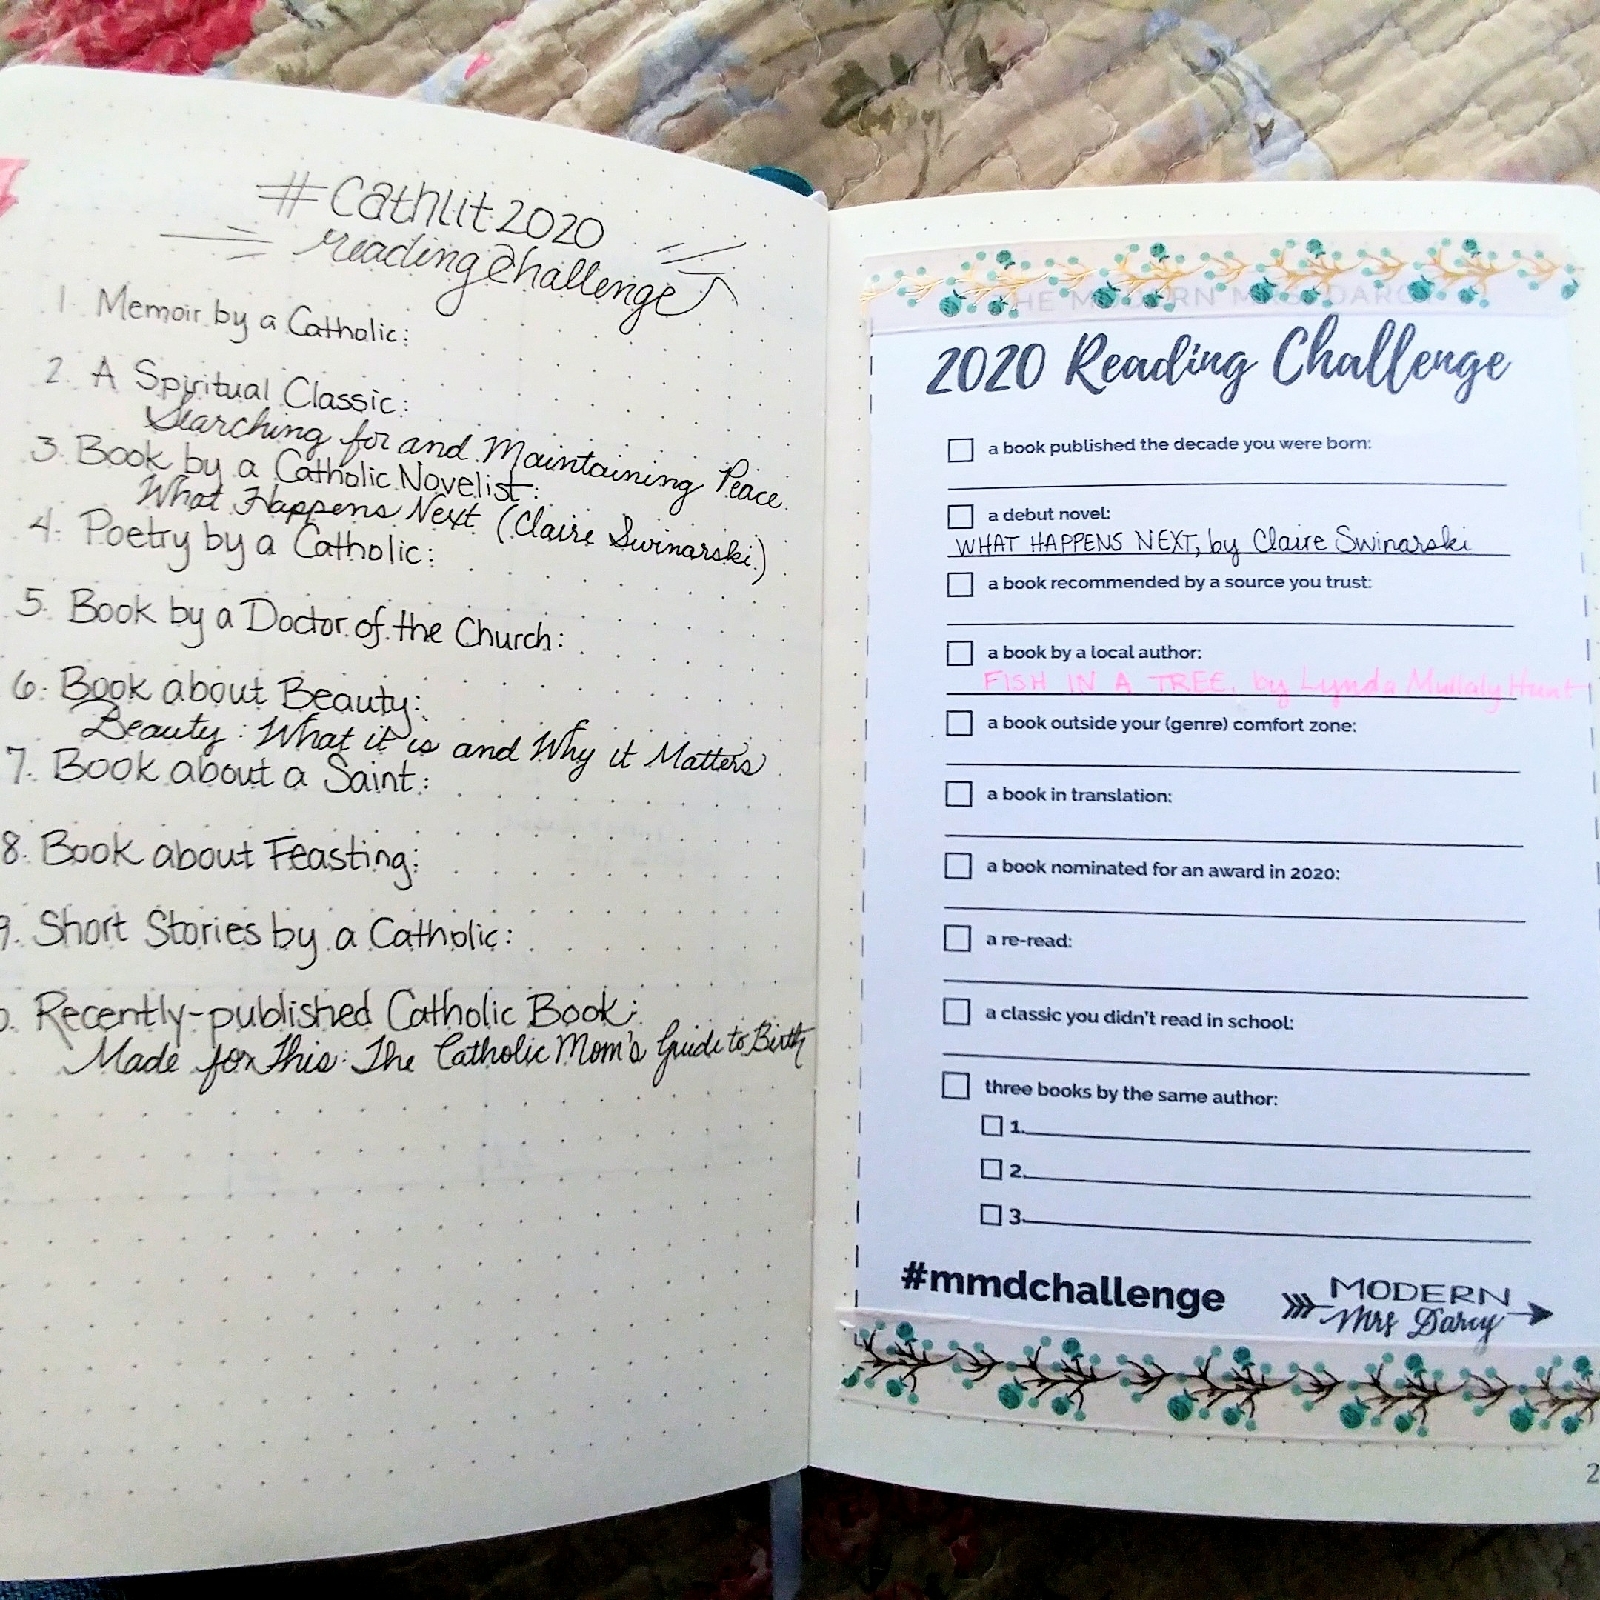 #Cathlit2020
reading challenge
1. Memoir by a Catholic:
2. A Spiritual Classic:
Searching for and Maintaining Peace
3. Book by a Catholic Novelist:
What Happens Next (Claire Swinarski)
4. Poetry by a Catholic:
5. Book by a Doctor of the Church:
6. Book about Beauty:
Beauty: What it is and Why it Matters
7. Book about a Saint:
8. Book about Feasting:
9. Short Stories by a Catholic:
0. Recently-published Catholic Book:
Made for This: The Catholic Mom's Guide to Birth
THE MODERN MRS DARCY
2020 Reading Challenge
a book published the decade you were born:
a debut novel:
WHAT HAPPENS NEXT, by Claire Swinarski
a book recommended by a source you trust:
a book by a local author:
FISH IN A TREE, by Lynda Mullaly Hunt
a book outside your (genre) comfort zone:
a book in translation:
a book nominated for an award in 2020:
a re-read:
a classic you didn't read in school:
three books by the same author:
1.
2.
3.
#mmdchallenge
MODERN
Mrs Darcy
2